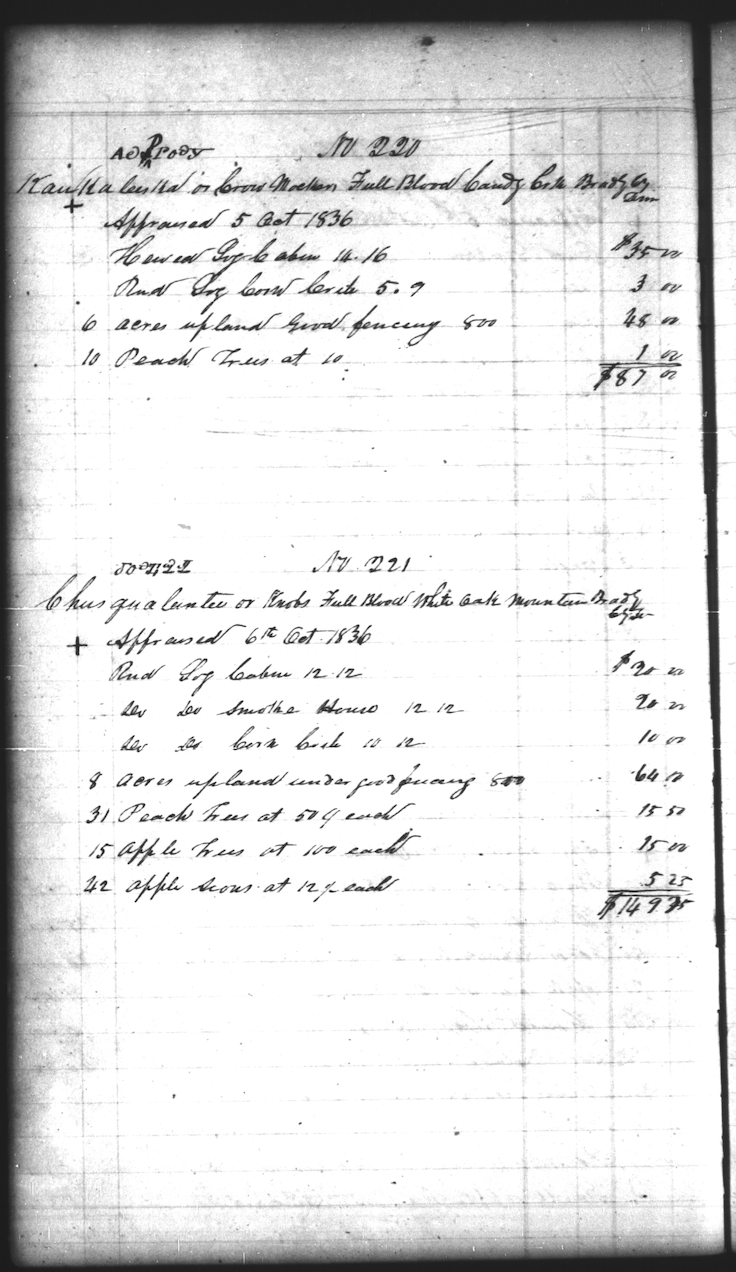 No 220
Kaukaleeska or Crow Mocker Full Blood Candy Crk Bradly Cy
Tenn
Appraised 5 Oct 1836
Hewed Log Cabin 14.16 $35 00
Rnd Log Corn Crib 5.9 3 00
6 acres upland Good fencing 800 48 00
10 Peach Trees at 10 1 00
$87 00
No 221
Chusqualuntee or Knobs Full Blood White Oak Mountain Bradly
Cy Te
Appraised 6th Oct 1836
Rnd Log Cabin 12.12 $20 00
Do Do Smoke House 12 12 20 00
Do Do Corn Crib 10 12 10 00
8 acres upland under good fencing 800 64 00
31 Peach Trees at 50 each 15 50
15 Apple Trees at 100 each 15 00
42 Apple Scions at 12½ each 5 25
$149